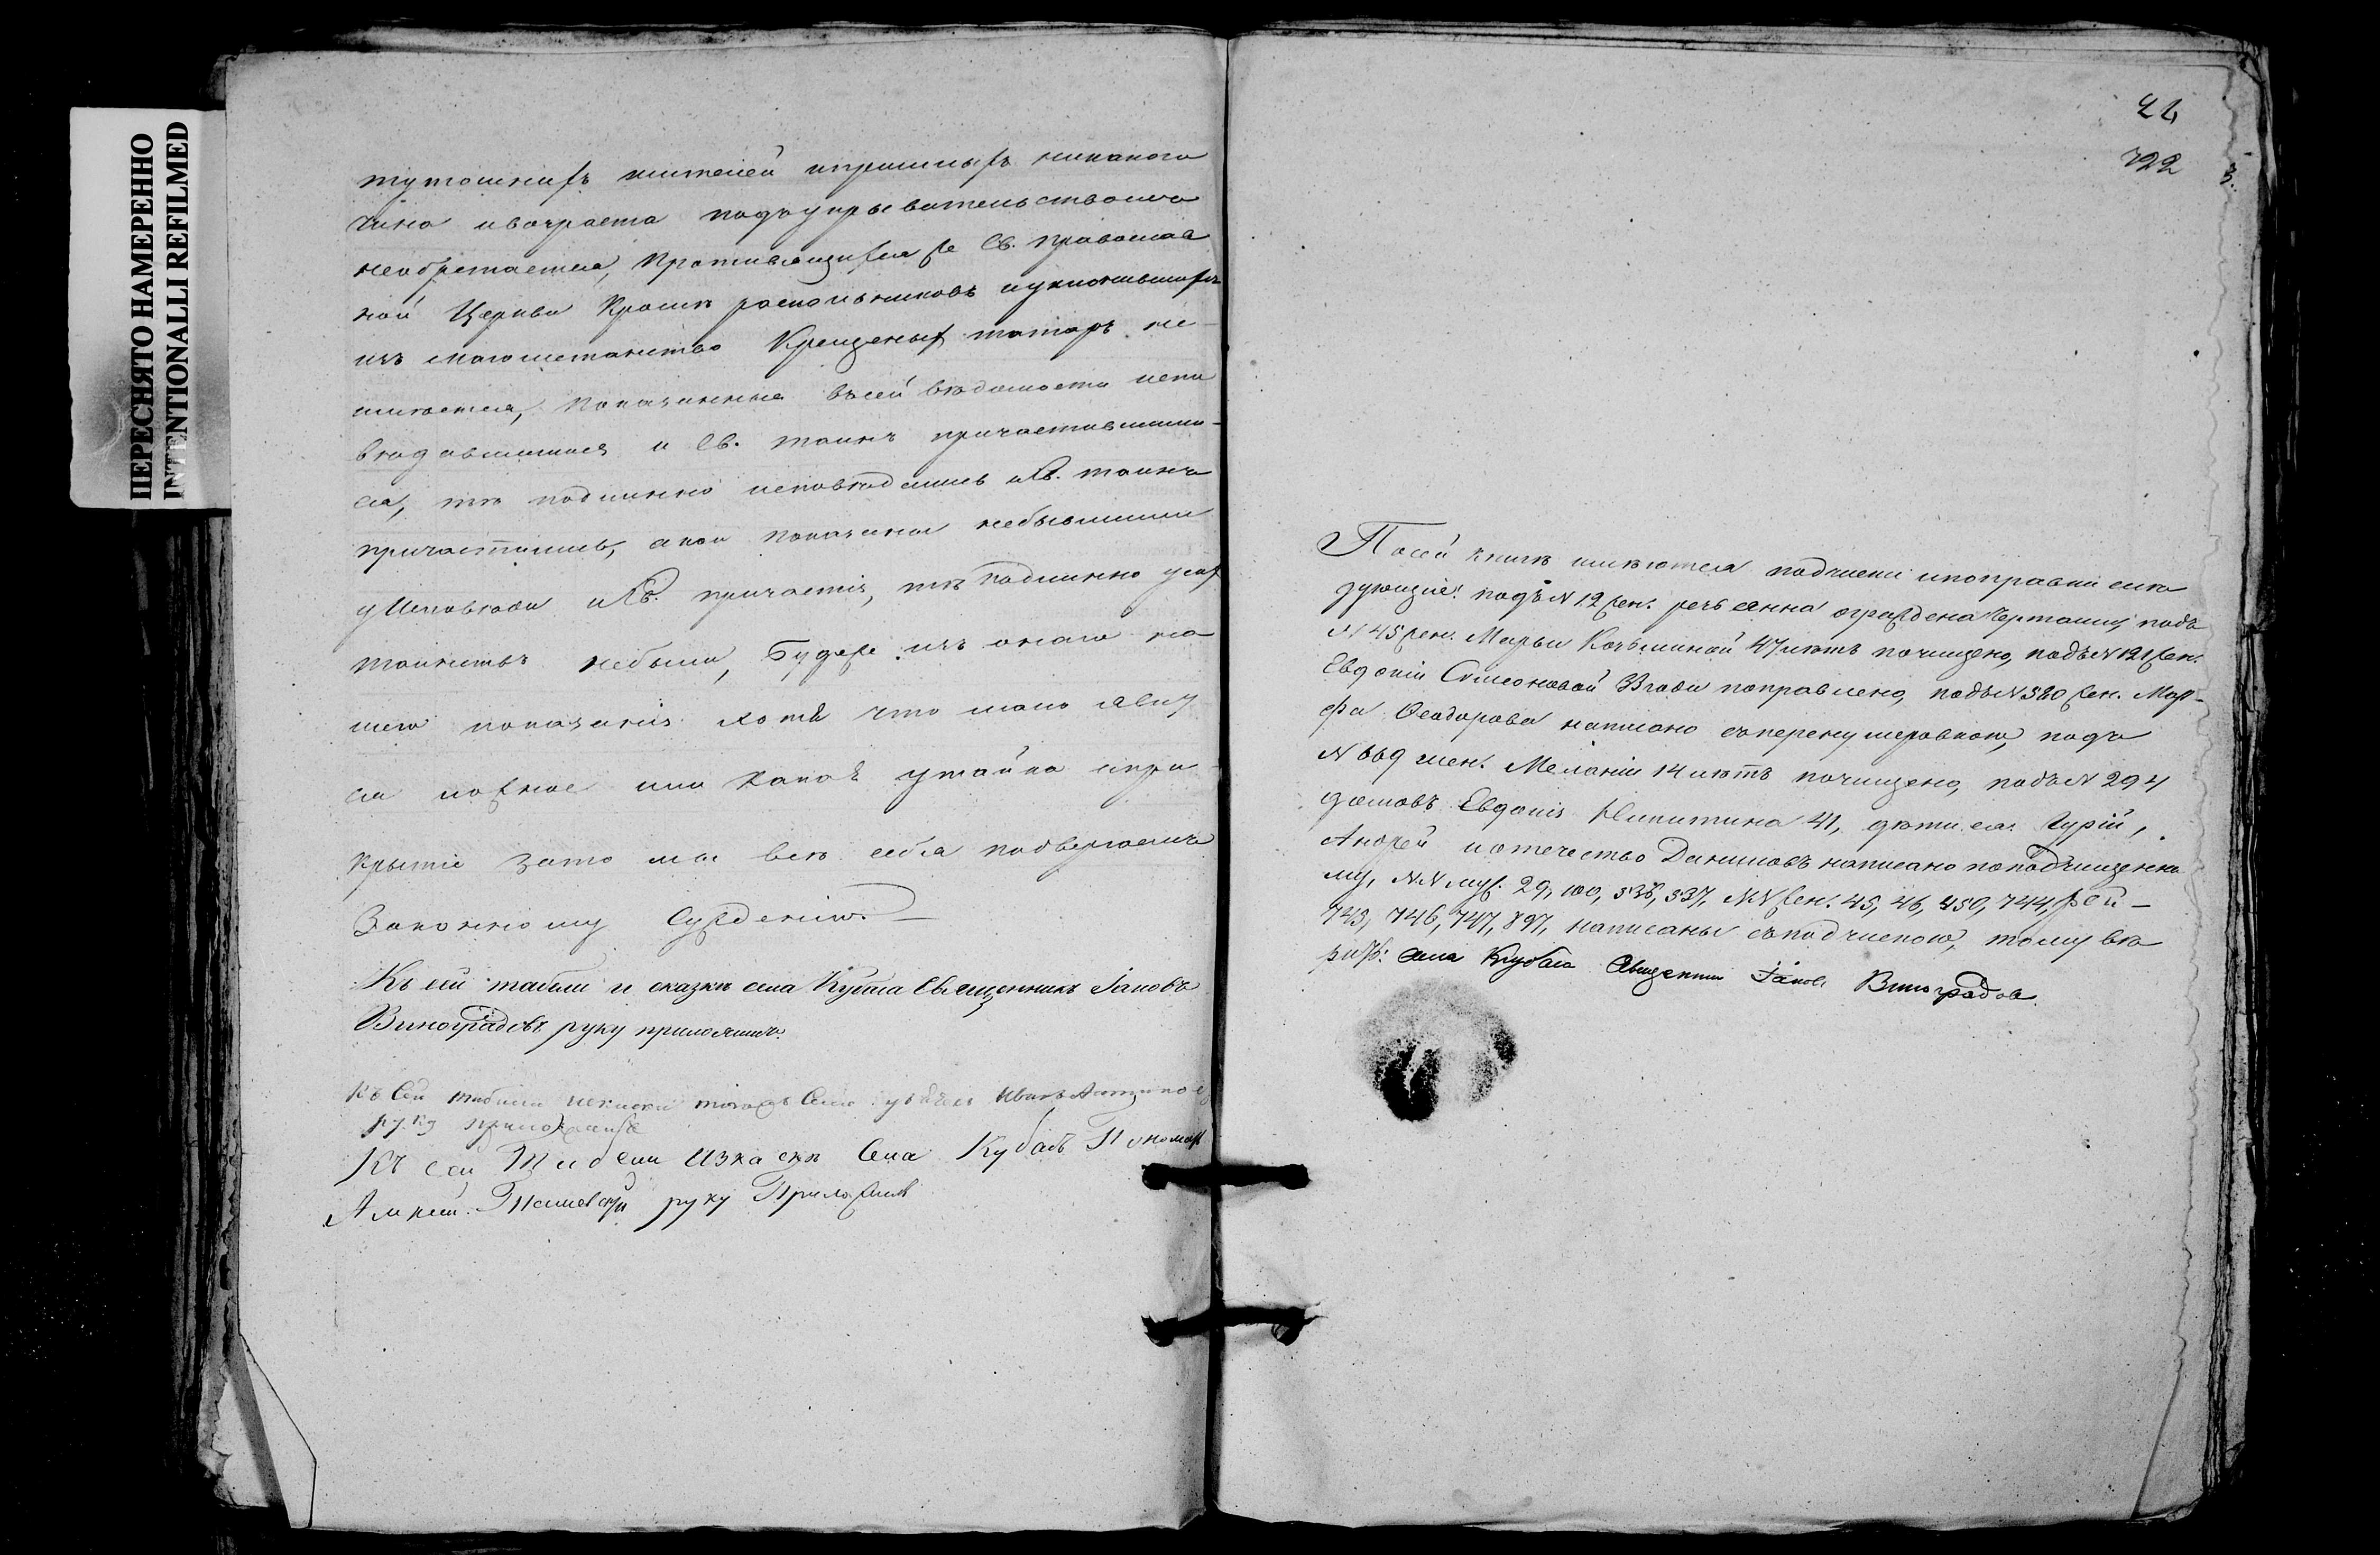 ПЕРЕСНЯТО НАМЕРЕННО
INTENTIONALLI REFILMED
тутошнихъ жителей ипришлыхъ никакого
чина ивозраста подъукрывательствомъ
необретается, противящихся же Св. православ
ной Церкви Кромѣ раскольниковъ иуклонившихъ
въ магометанство Крещеныхъ татаръ не
имѣется, показанные всей вѣдомости испо
вѣдавшимися и Св. таинъ причастившими-
ся, тѣ подлинно исповѣдались иСв. таинъ
причастились, акои показаны небывшими
уИсповѣди иСв. причастія, тѣ подлинно усихъ
таинствъ небыли, Будеже изъ онаго на
шего показанія хотя что мало явит
ся ложное или какая утайка ипри
крытіе зато мы всѣ себя подвергаемъ
Законному Сужденію.
Къ сей табели и сказкѣ села Кубаса Священникъ Іаковъ
Виноградовъ руку приложилъ.
Къ Сей табели искаски тогожъ Села Иванъ
руку приложилъ
Къ сей Табели Изкаски Села Кубасъ Пономарь
Алексей руку Приложилъ
722
3.
Посей книгѣ имѣются подчистки ипоправки слѣ
дующія: подъ N 12 жен. рѣчь Анна ограждена чертами, подъ
N 45 жен. Марьи Козьминой 47 лѣтъ почищено, подъ N 121 жен.
Евдокіи Симеоновой 3 года поправлено, подъ N 520 жен. Мар-
фа Ѳеодорова написано съперенумеровкою, подъ
N 669 жен. Меланіи 14 лѣтъ почищено, подъ N 294
домовъ Евдокія Никитина 41, дѣти ея Гурій,
Андрей иотечество Даниловъ написано поподчищенно
му, NN муж. 29, 100, 536, 537, NN жен. 45, 46, 450, 744,
745, 746, 747, 897, написаны съподчисткою, тому вѣ
рить: села Кубаса Священникъ Іаковъ Виноградовъ.